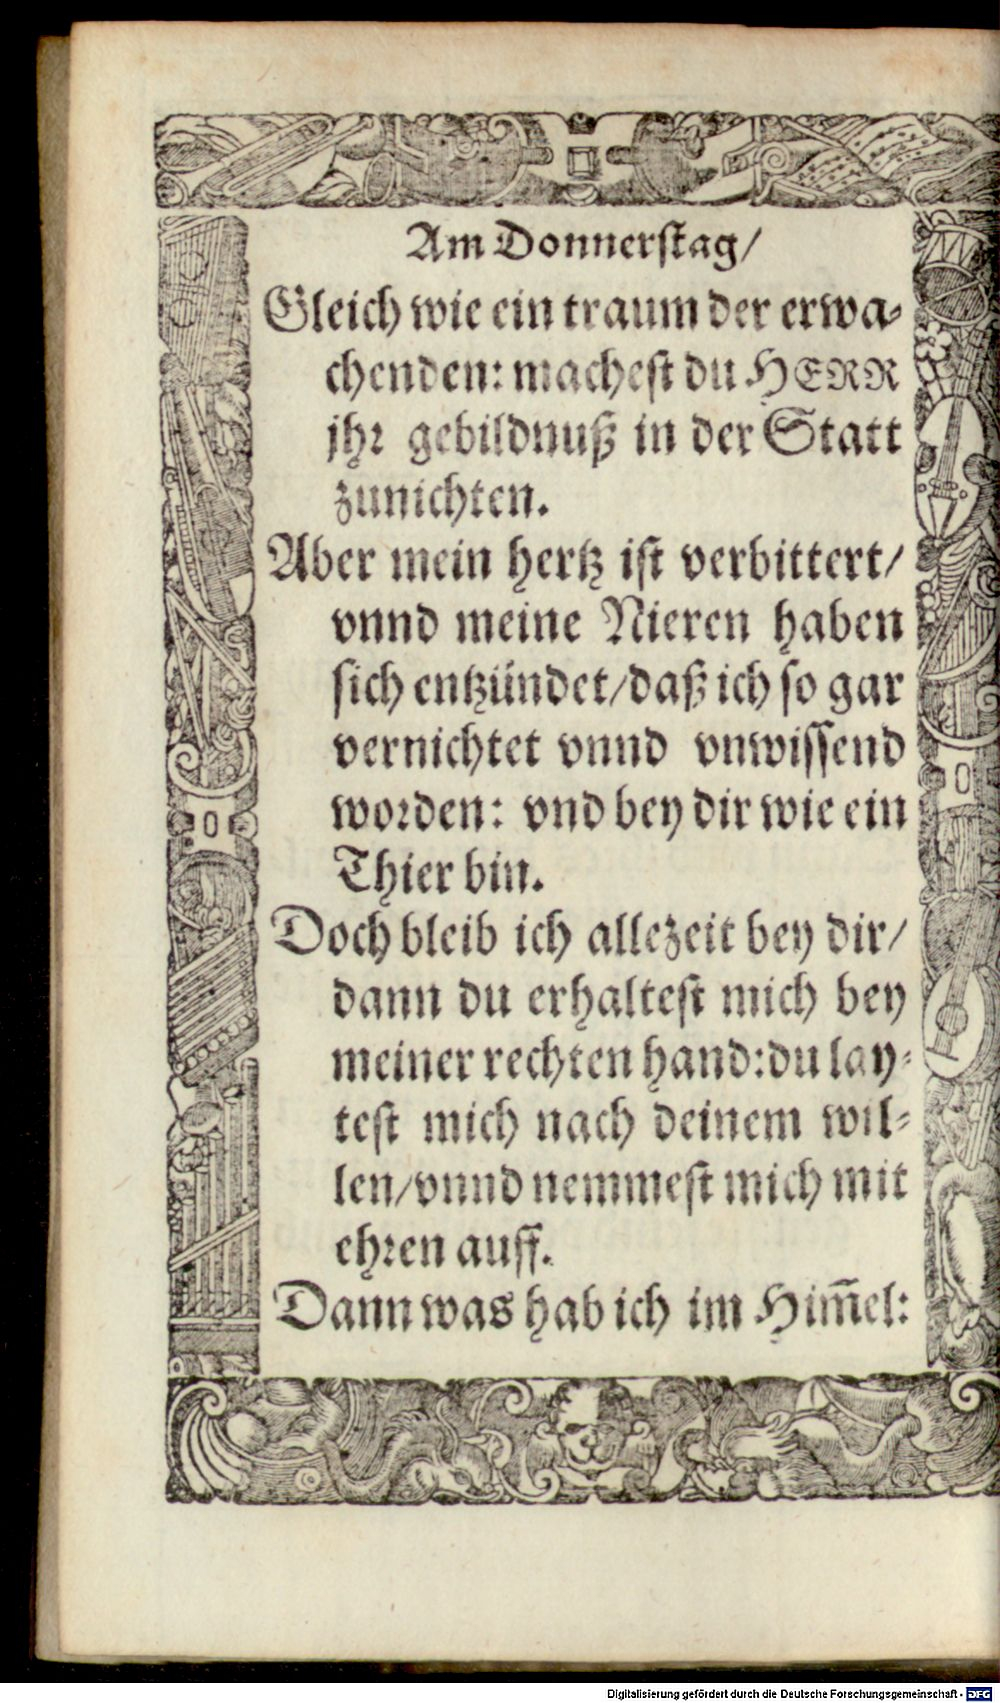 Am Donnerstag/
Gleich wie ein traum der erwa-
chenden: machest du HERR
jhr gebildnuß in der Statt
zunichten.
Aber mein hertz ist verbittert/
vnnd meine Nieren haben
sich entzündet/daß ich so gar
vernichtet vnnd vnwissend
worden: vnd bey dir wie ein
Thier bin.
Doch bleib ich allezeit bey dir/
dann du erhaltest mich bey
meiner rechten hand:du lay-
test mich nach deinem wil-
len/vnnd nemmest mich mit
ehren auff.
Dann was hab ich im Him̃el:
Digitalisierung gefördert durch die Deutsche Forschungsgemeinschaft - DFG